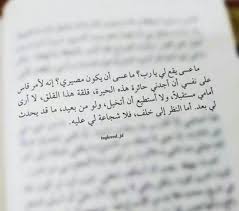 ما عسى يقع لي يارب؟ ما عسى أن يكون مصيري؟ إنه لأمر قاس
على نفسي أن أجدني حائرة هذه الحيرة، قلقة هذا القلق، لا أرى
أمامي مستقبلاً، ولا أستطيع أن أتخيل، ولو من بعيد، ما قد يحدث
لي بعد. أما النظر إلى خلف، فلا شجاعة لي عليه.